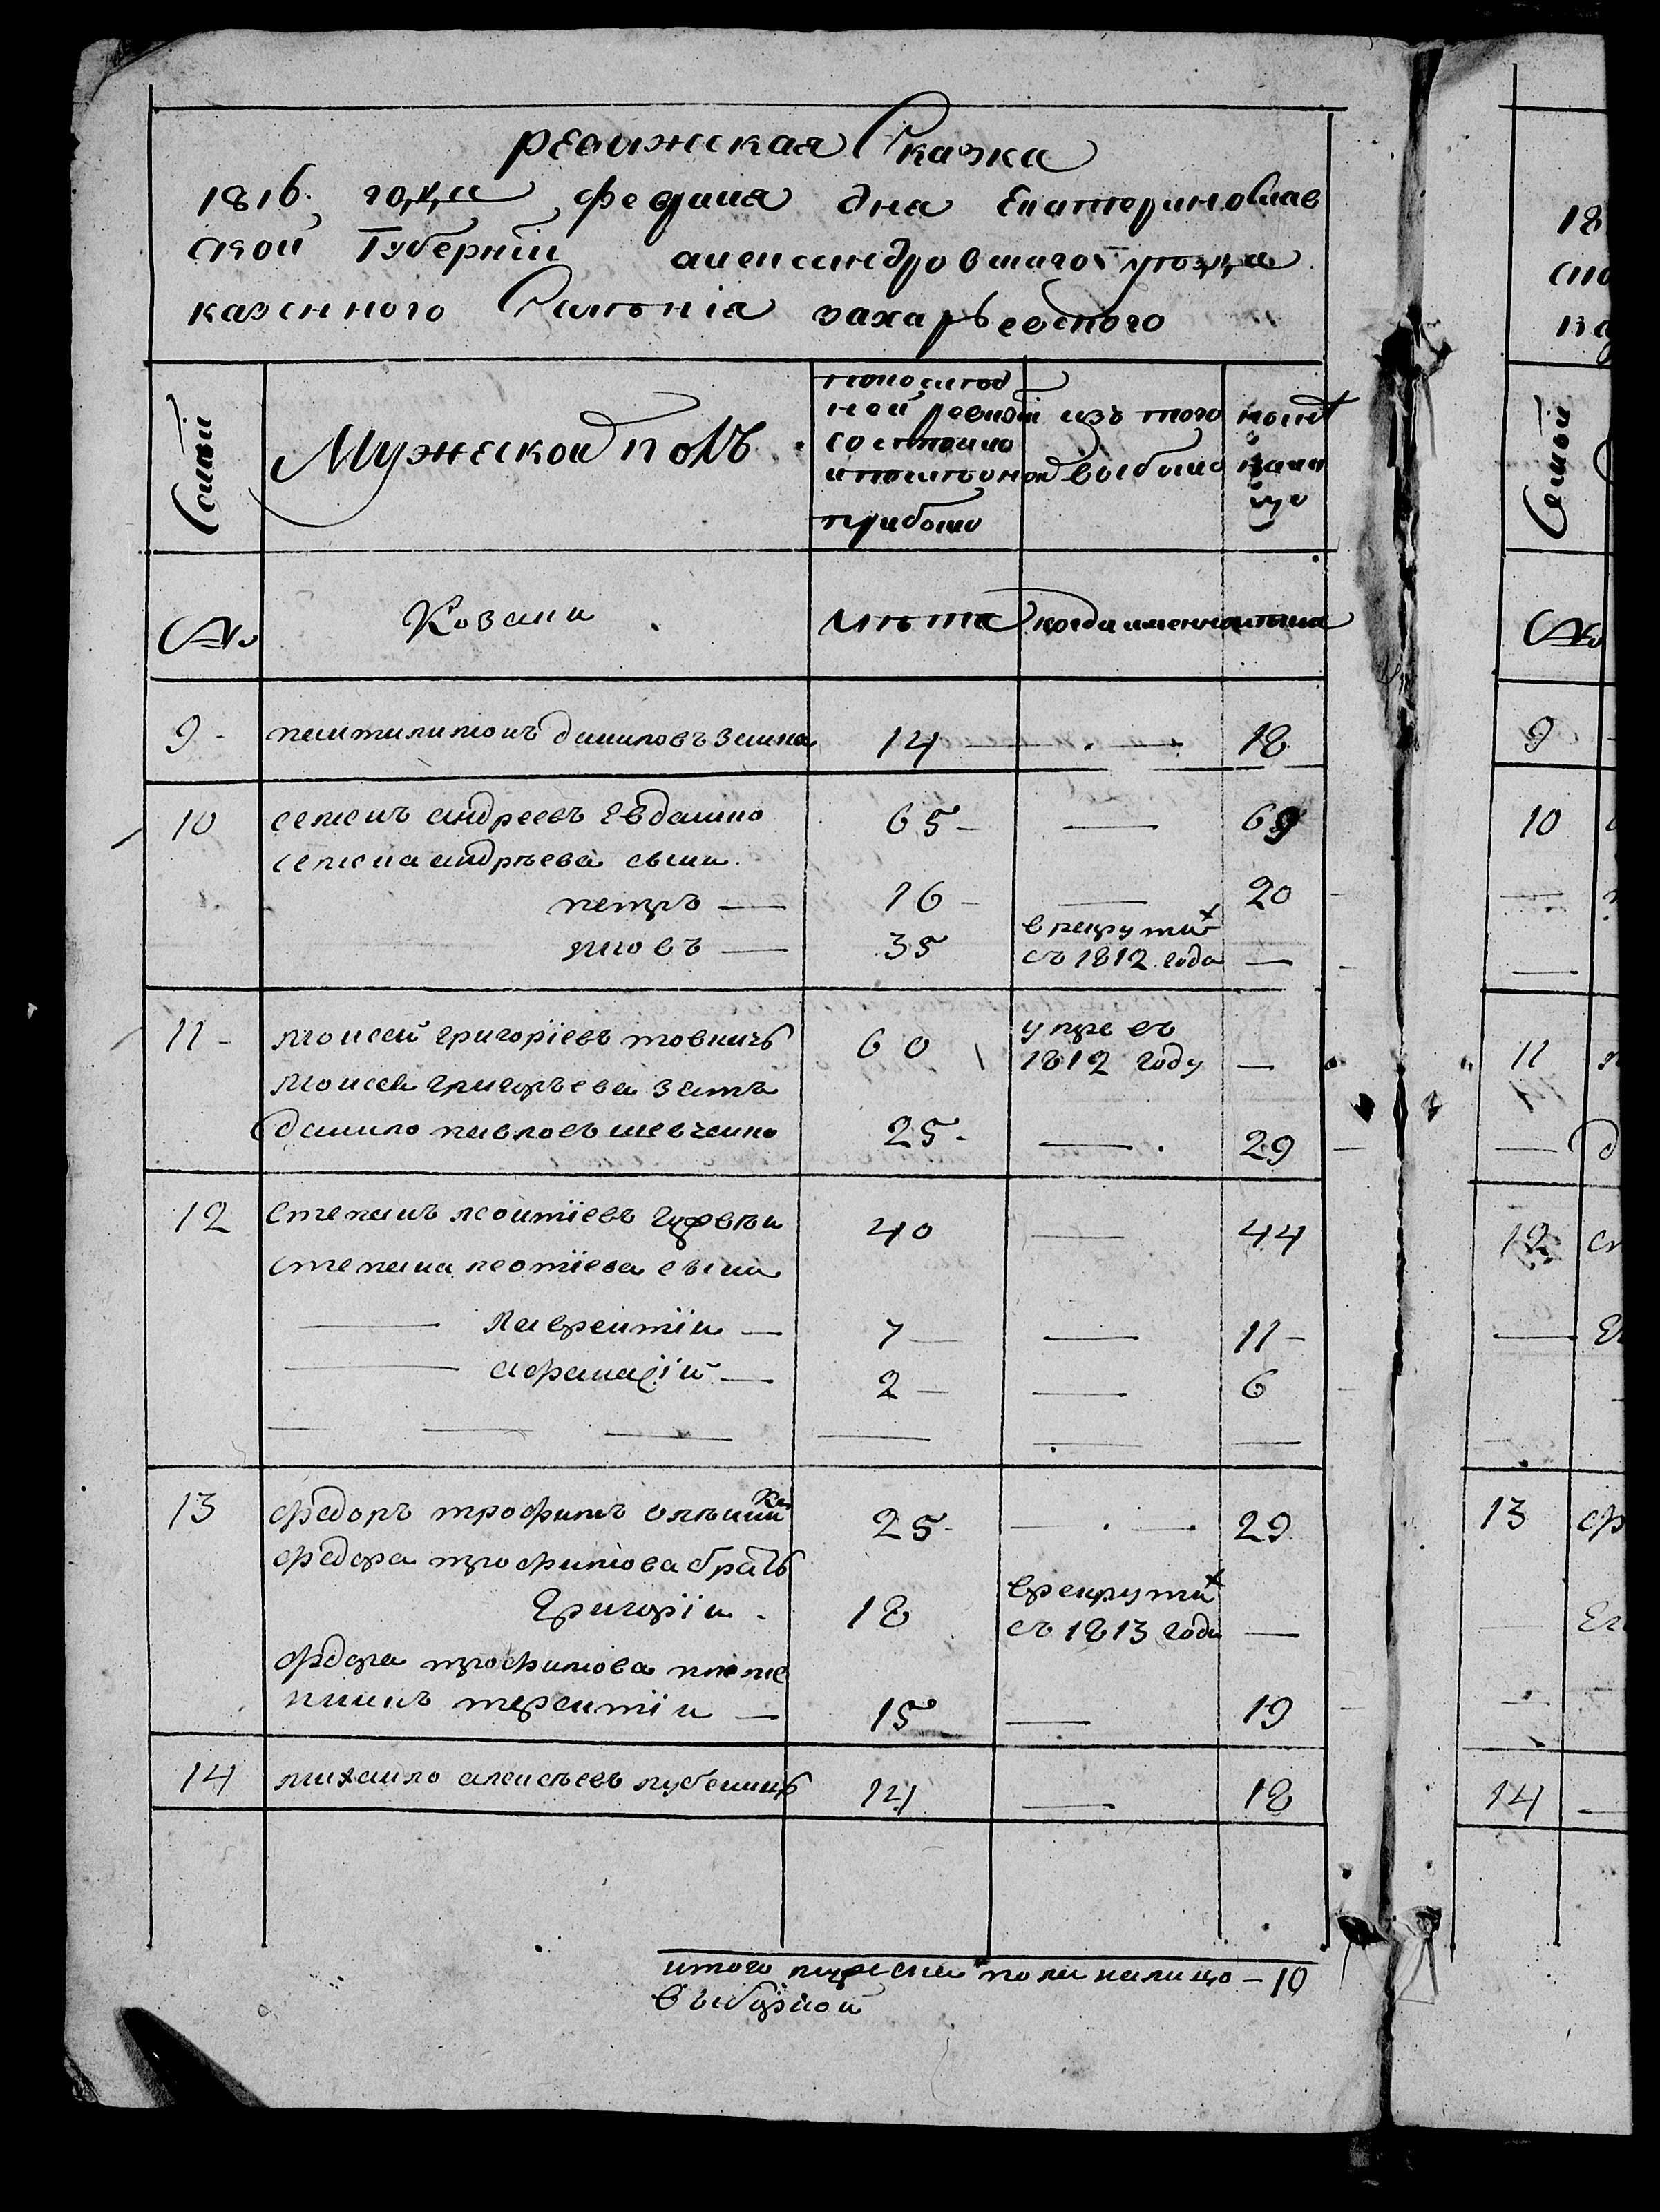 ревижская Сказка
1816. года февраля дня Екатеринослав
ской Губерніи александровскаго уѣзда
казенного Селѣнія захарьевского
Семьи
Мужеской полъ
по последней ревизіи состояло и после оной прибыло
изъ того выбыло
ныне на лицо
№
Козаки
лѣта
когда именно
лѣта
9 - пантилимонъ даниловъ заика 14 — 18
10 семенъ андреевъ Евдашко 65 - — 69
семена андрѣева сыни
петръ — 16 - — 20
яковъ — 35 в рекрутах съ 1812 года —
11 - моисей григоріевъ товкачъ 60 умре въ 1812 году —
моисея григорьева зять
данило павловъ шевченко 25 - — 29
12 степанъ леонтіевъ 40 — 44
степана леонтіева сыни
— лаврентіи — 7 — — 11 -
— афанасій — 2 — — 6
13 федоръ трофимъ 25 - — 29
федора трофимова братъ
Григоріи 18 в рекрутах съ 1813 года —
федора трофимова племе
никъ терентіи — 15 — 19
14 михаило алексѣевъ 14 — 18
итого мужеска пола на лицо — 10
18
9
10
11
12
13
14